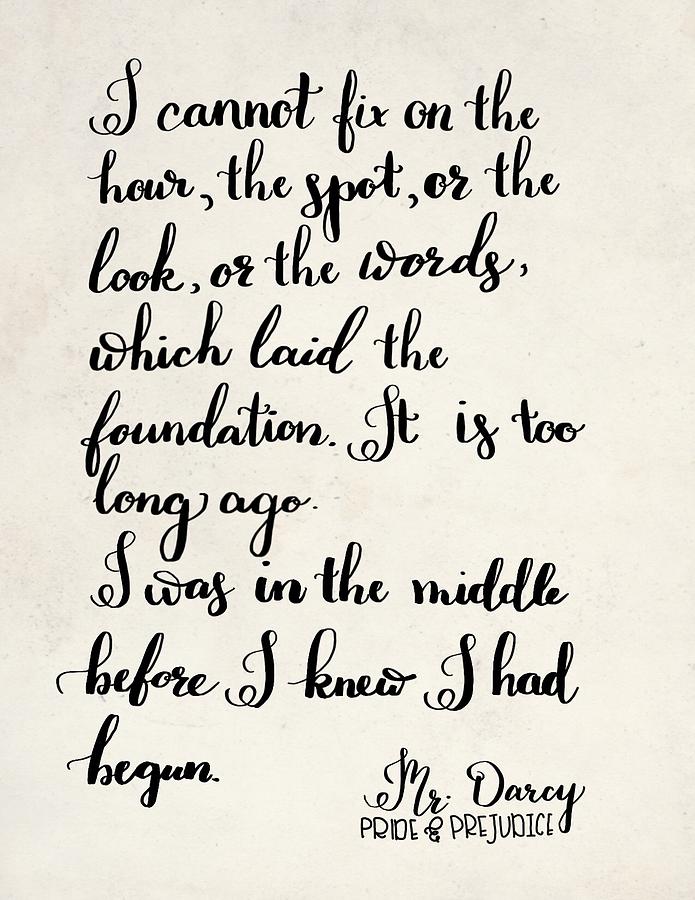 I cannot fix on the
hour, the spot, or the
look, or the words,
which laid the
foundation. It is too
long ago.
I was in the middle
before I knew I had
begun.
Mr. Darcy
PRIDE & PREJUDICE